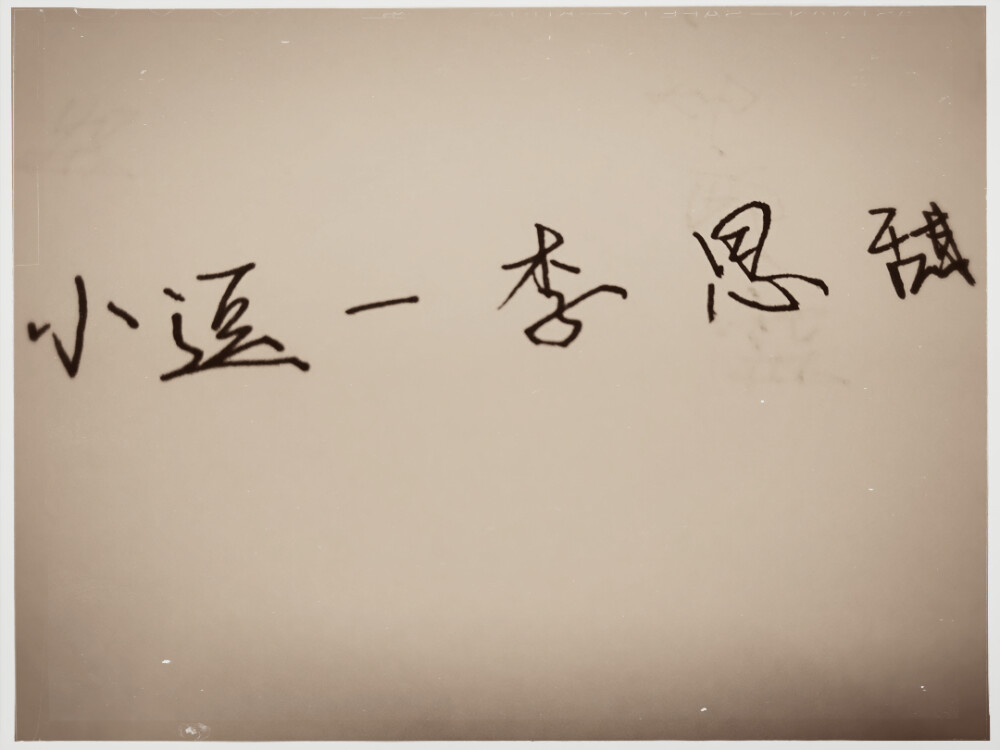 小逗—李思甜